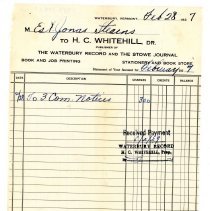 WATERBURY, VERMONT, Feb 28 1937
M Est Jonas Stearns
TO H. C. WHITEHILL, DR.
PUBLISHER OF
THE WATERBURY RECORD AND THE STOWE JOURNAL
BOOK AND JOB PRINTING STATIONERY AND BOOK STORE
Statement of Your Account to February
DATE CREDITS BALANCE
To 3 Com. Notices 300
Received Payment
WATERBURY RECORD
H. C. WHITEHILL, Prop.